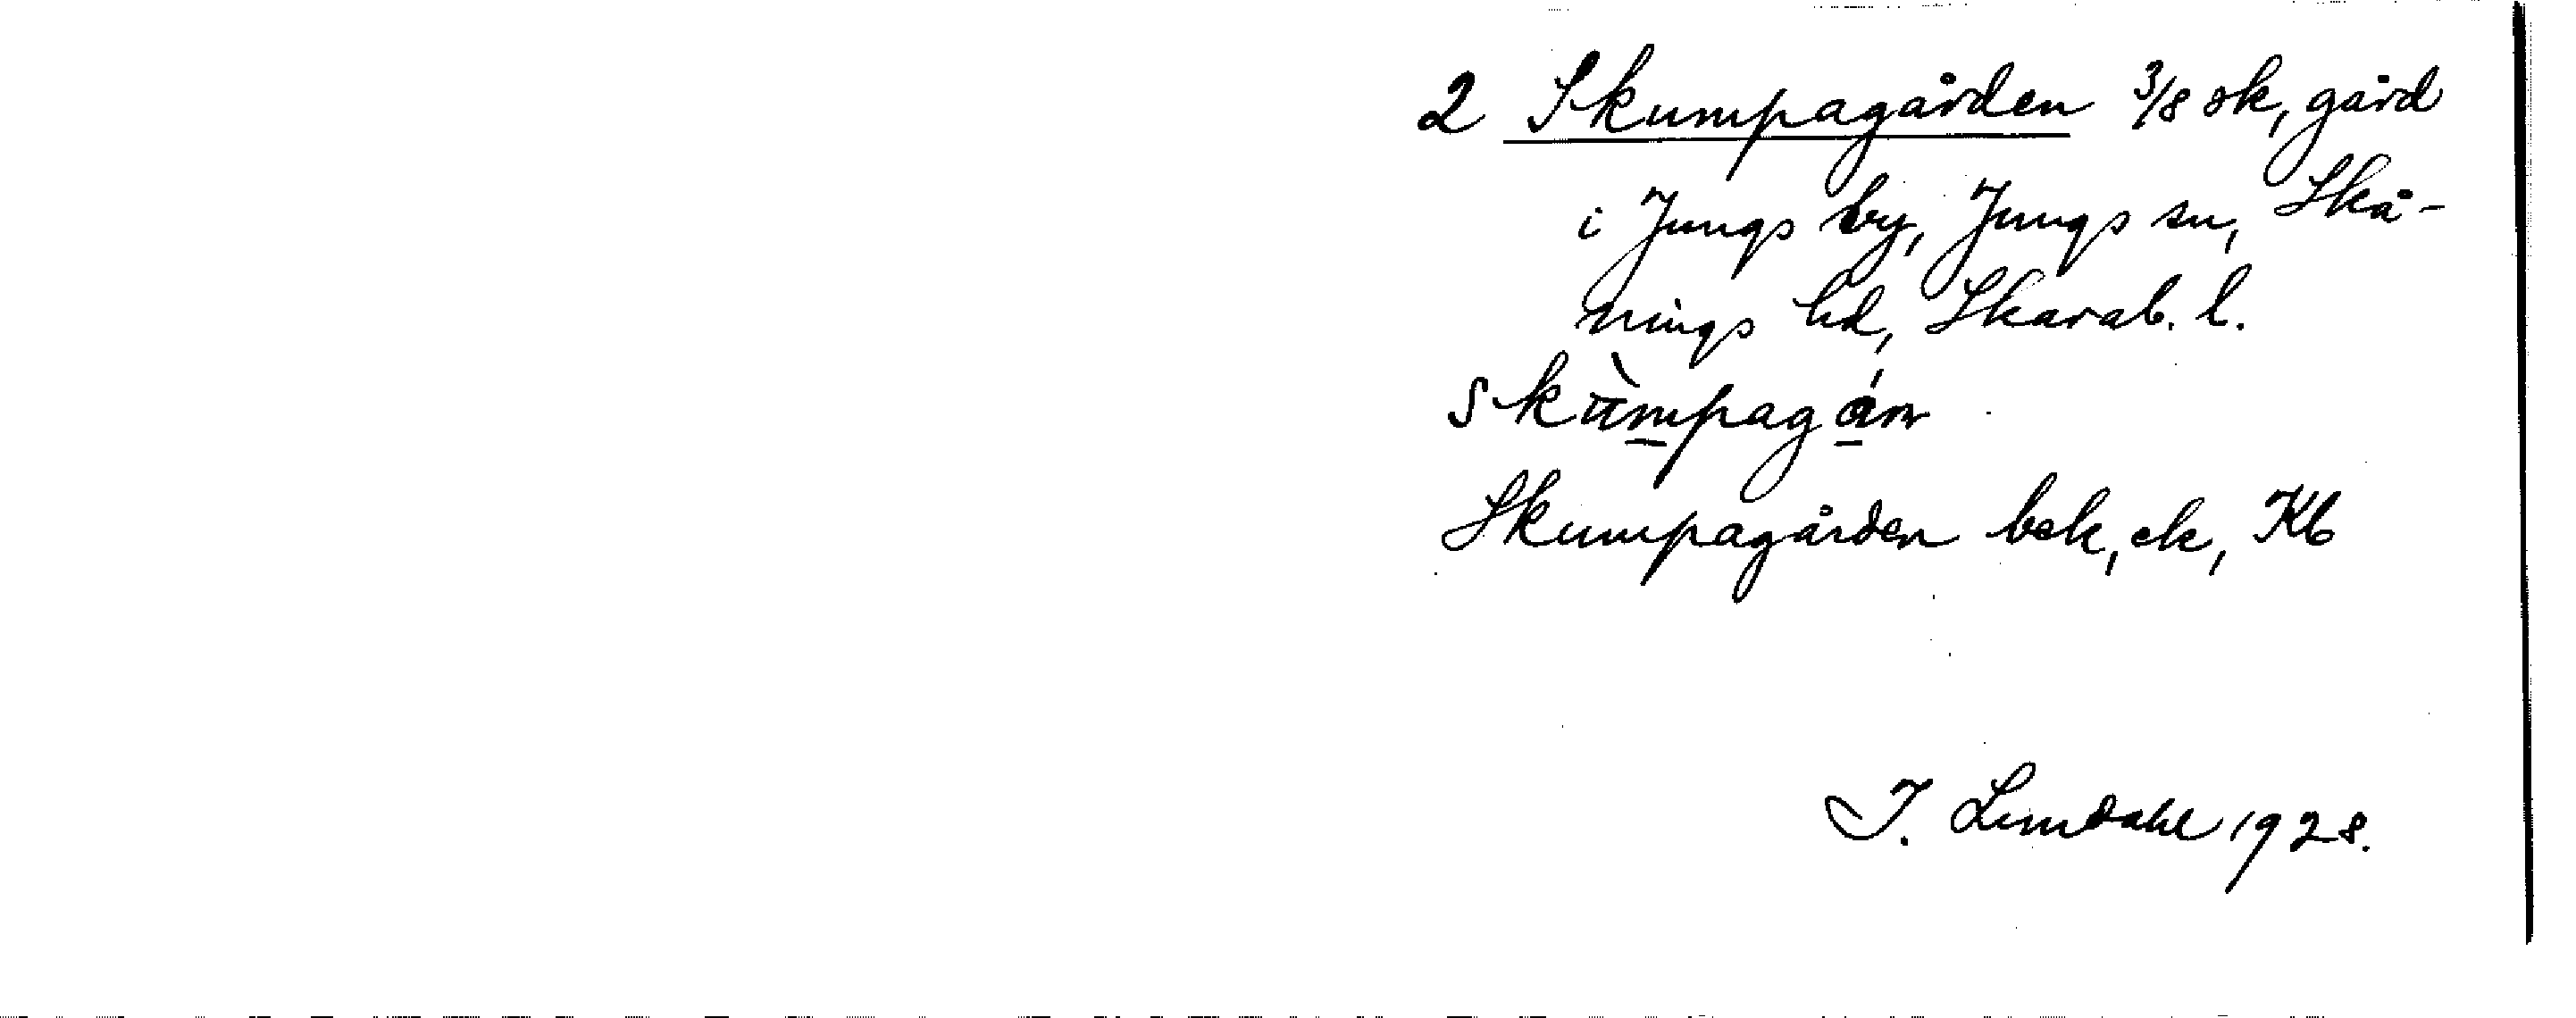 2 Skumpagården 3/8 sk, gård
i Jungs by, Jungs sn, Skå-
nings hd, Skarab. l.
skùmpagán
Skumpagården bek, ek, Kb
J. Lindahl 1928.